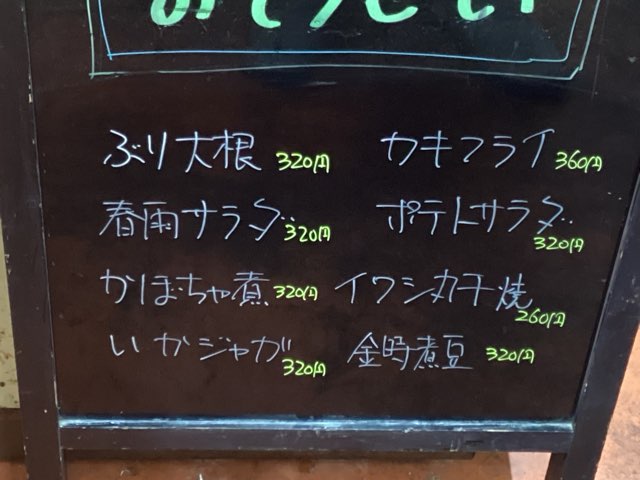 おそうざい
ぶり大根 320円
カキフライ 360円
春雨サラダ 320円
ポテトサラダ 320円
かぼちゃ煮 320円
イワシ丸干焼 260円
いかジャガ 320円
金時煮豆 320円